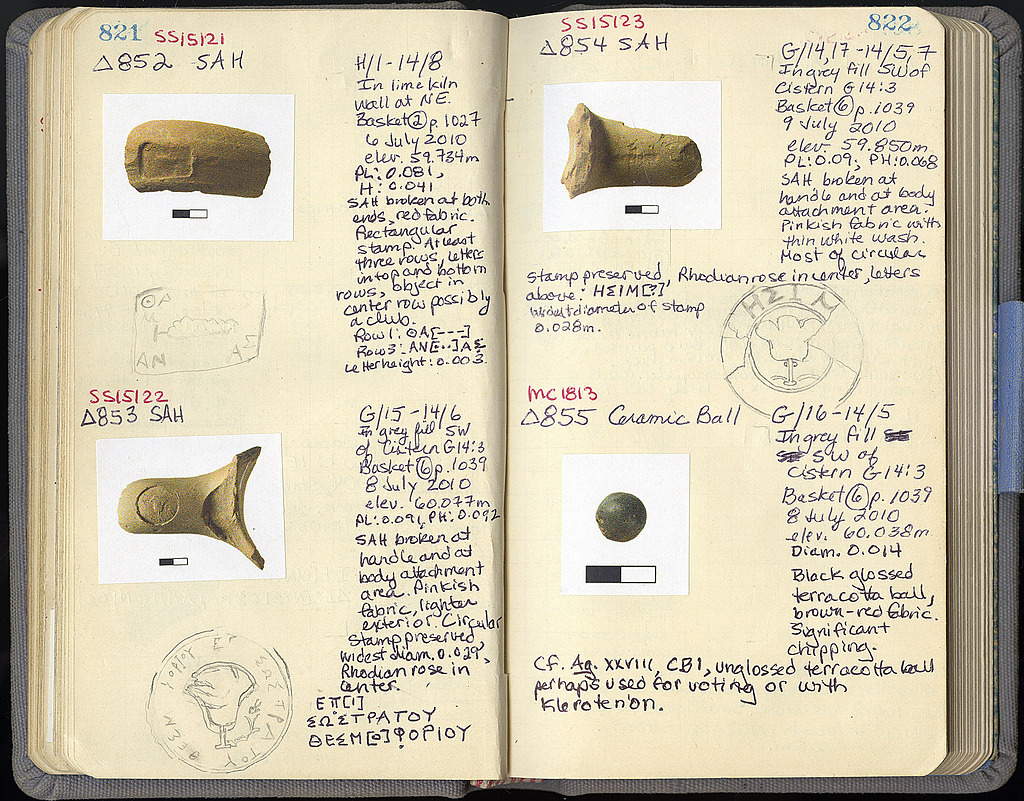 821 SS15121
Δ852 SAH
H/1-14/8
In lime kiln
wall at NE.
Basket ② p. 1027
6 July 2010
elev. 59.734m
PL: 0.081,
H: 0.041
SAH broken at both
ends, red fabric.
Rectangular
stamp. At least
three rows, letters
in top and bottom
rows, object in
center row possibly
a club.
Row 1: ΘΑ[---]
Row 3: ΑΝ[··]ΑΣ
Letter height: 0.003.
ΘΑ
Μ
ΑΝ ΑΣ
SS15122
Δ853 SAH
G/15-14/6
In grey fill SW
of Cistern G14:3
Basket ⑥ p. 1039
8 July 2010
elev. 60.077m
PL: 0.091, PH: 0.092
SAH broken at
handle and at
body attachment
area. Pinkish
fabric, lighter
exterior. Circular
stamp preserved,
widest diam. 0.029,
Rhodian rose in
center.
ΕΠ[Ι]
ΣΩΣΤΡΑΤΟΥ
ΘΕΣΜ[Ο]ΦΟΡΙΟΥ
822
SS15123
Δ854 SAH
G/14,17-14/5,7
In grey fill SW of
Cistern G14:3
Basket ⑥ p. 1039
9 July 2010
elev. 59.850m
PL: 0.09, PH: 0.068
SAH broken at
handle and at body
attachment area.
Pinkish fabric with
thin white wash.
Most of circular
stamp preserved, Rhodian rose in center, letters
above: ΗΣΙΜ[?]
widest diameter of stamp
0.028m.
ΗΣΙΜ
MC1813
Δ855 Ceramic Ball
G/16-14/5
In grey fill
SW of
Cistern G14:3
Basket ⑥ p. 1039
8 July 2010
elev. 60.038m
Diam. 0.014
Black glossed
terracotta ball,
brown-red fabric.
Significant
chipping.
Cf. Ag. XXVIII, CB1, unglossed terracotta ball
perhaps used for voting or with
kleroterion.